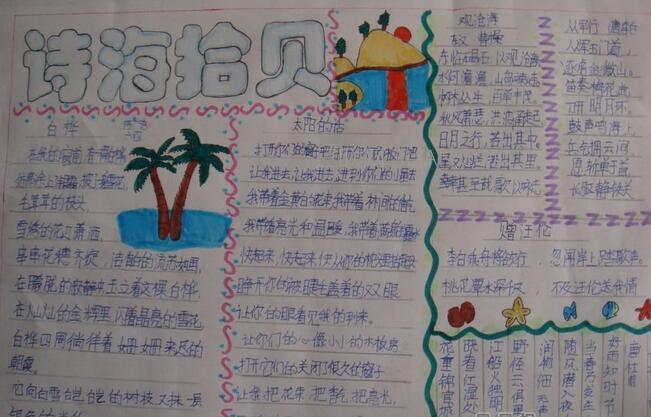 诗海拾贝
白桦
在我的窗前有一棵白桦
毛茸茸的枝头
雪绣的花边潇洒
串串花穗齐绽，洁白的流苏如画
在朦胧的寂静中玉立着这棵白桦
在灿灿的金辉里闪着晶亮的雪花
白桦四周徜徉着姗姗来迟的
朝霞
它向白雪皑皑的树枝又抹一层
太阳的话
打开你们的窗子吧打开你们的板门吧
让我进去，让我进去，进到你们的小屋去
我带着金黄的花束我带着林间的香气
我带着亮光和温暖，我带着满身的露水
快起来，快起来 快从你们的枕头里抬起头来
睁开你的被睫毛盖着的双眼
让你的眼看见我的到来
让你们的心像小小的木板房
打开它们的关闭了很久的窗子
让我把花束，把香气，把亮光，
观沧海
东汉 曹操
东临碣石，以观沧海
水何澹澹，山岛竦峙。
树木丛生，百草丰茂。
秋风萧瑟，洪波涌起
日月之行，若出其中。
星汉灿烂，若出其里。
幸甚至哉，歌以咏志
从军行
鼓声鸣海上
赠汪伦
李白乘舟将欲行，忽闻岸上踏歌声
桃花潭水深千尺，不及汪伦送我情
好雨知时节
当春乃发生
随风潜入夜
润物细无声
野径云俱黑
江船火独明
晓看红湿处
花重锦官城